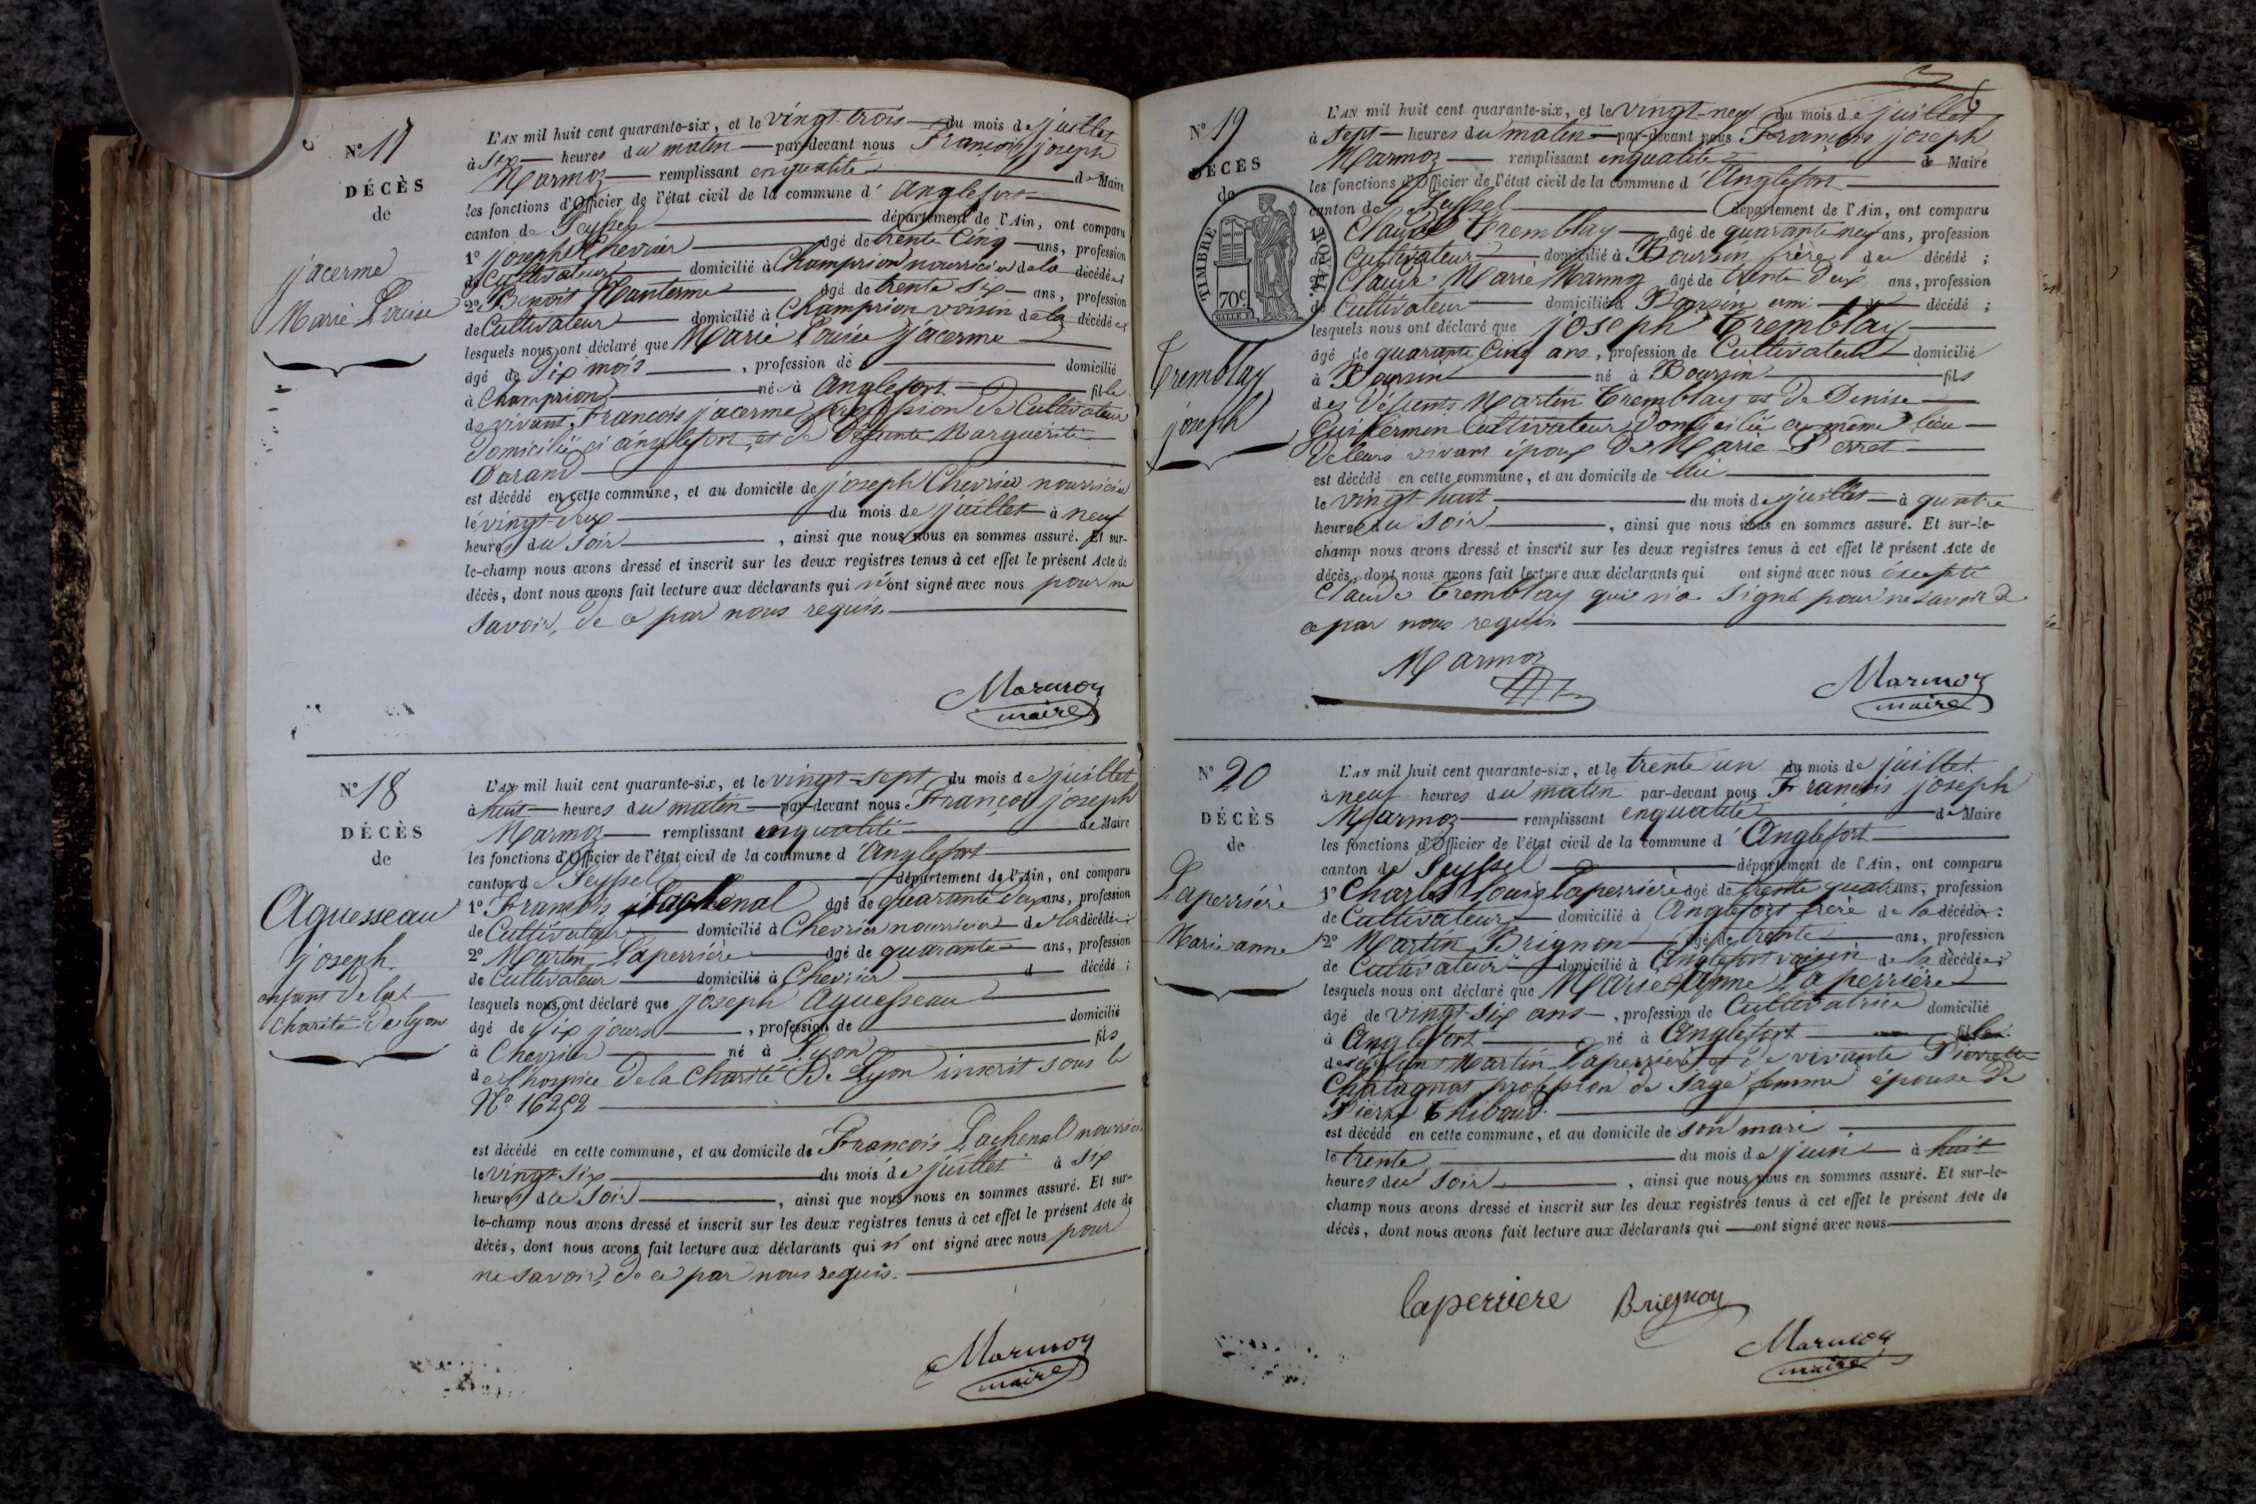 Nº 17
DÉCÈS
de
jacerme
Marie Louise
L'AN mil huit cent quarante-six, et le vingt-trois du mois de juillet
à six heures du matin par-devant nous François joseph
Marmoz remplissant enqualité de Maire
les fonctions d'Officier de l'état civil de la commune d'Anglefort
canton de Seyssel département de l'Ain, ont comparu
1º joseph Chevrier âgé de trente Cinq ans, profession
de Cultivateur domicilié à Champrion nourricier de la décédée
2º Benoit Manterme âgé de trente six ans, profession
de Cultivateur domicilié à Champrion voisin de la décédée
lesquels nous ont déclaré que Marie Louise jacerme
âgé de Six mois, profession de domicilié
à Champrion né à anglefort fille
de vivant François jacerme profession de Cultivateur
Domicilié à anglefort, et de Défunte Marguerite
Darand
est décédé en cette commune, et au domicile de joseph Chevrier nourricier
le vingt-deux du mois de juillet à neuf
heures du Soir, ainsi que nous nous en sommes assuré. Et sur-
le-champ nous avons dressé et inscrit sur les deux registres tenus à cet effet le présent Acte de
décès, dont nous avons fait lecture aux déclarants qui n'ont signé avec nous pour ne
Savoir, de ce par nous requis.
Marmoz
maire
Nº 18
DÉCÈS
de
Aguesseau
joseph
enfant de la
charité de lyon
L'AN mil huit cent quarante-six, et le vingt-sept du mois de juillet
à huit heures du matin par-devant nous François joseph
Marmoz remplissant enqualité de Maire
les fonctions d'Officier de l'état civil de la commune d'Anglefort
canton de Seyssel département de l'Ain, ont comparu
1º François Lachenal âgé de quarante Deux ans, profession
de Cultivateur domicilié à Chevrier nourricier de décédé;
2º Martin Laperrière âgé de quarante ans, profession
de Cultivateur domicilié à Chevrier d décédé;
lesquels nous ont déclaré que joseph Aguesseau
âgé de Dix jours, profession de domicilié
à Chevrier né à Lyon fils
de l'hospice de la Charité De Lyon inscrit sous le
Nº 16252
est décédé en cette commune, et au domicile de François Lachenal nourricier
le vingt-six du mois de juillet à six
heures du Soir, ainsi que nous nous en sommes assuré. Et sur-
le-champ nous avons dressé et inscrit sur les deux registres tenus à cet effet le présent Acte de
décès, dont nous avons fait lecture aux déclarants qui n'ont signé avec nous pour
ne savoir, de ce par nous requis.
Marmoz
maire
6
Nº 19
DÉCÈS
de
TIMBRE ROYAL
70c
Tremblay
joseph
L'AN mil huit cent quarante-six, et le vingt-neuf du mois de juillet
à sept heures du matin par-devant nous François joseph
Marmoz remplissant enqualité de Maire
les fonctions d'Officier de l'état civil de la commune d'Anglefort
canton de Seyssel département de l'Ain, ont comparu
1º Claude Tremblay âgé de quarante neuf ans, profession
de Cultivateur domicilié à Boursin frère du décédé;
2º Claude Marie Marmoz âgé de trente Deux ans, profession
de Cultivateur domicilié à Boursin ami décédé;
lesquels nous ont déclaré que joseph Tremblay
âgé de quarante Cinq ans, profession de Cultivateur domicilié
à Boursin né à Boursin fils
des Défunts Martin Tremblay et de Denise
Guillermin Cultivateurs Domiciliés au même lieu
De leurs vivant époux De Marie Perret
est décédé en cette commune, et au domicile de lui
le vingt-huit du mois de juillet à quatre
heures du Soir, ainsi que nous nous en sommes assuré. Et sur-le-
champ nous avons dressé et inscrit sur les deux registres tenus à cet effet le présent Acte de
décès, dont nous avons fait lecture aux déclarants qui ont signé avec nous excepté
Claude Tremblay qui n'a Signé pour ne savoir de
ce par nous requis.
Marmoz
Marmoz
maire
Nº 20
DÉCÈS
de
Laperrière
Marie anne
L'AN mil huit cent quarante-six, et le trente un du mois de juillet
à neuf heures du matin par-devant nous François joseph
Marmoz remplissant enqualité de Maire
les fonctions d'Officier de l'état civil de la commune d'Anglefort
canton de Seyssel département de l'Ain, ont comparu
1º Charles louis Laperrière âgé de trente quatre ans, profession
de Cultivateur domicilié à Anglefort frère de la décédée;
2º Martin Brignon âgé de trente ans, profession
de Cultivateur domicilié à Anglefort voisin de la décédée;
lesquels nous ont déclaré que Marie Anne Laperrière
âgé de vingt-Six ans, profession de Cultivatrice domicilié
à Anglefort né à Anglefort fille
de défunt Martin Laperrière et de vivante Pierrette
Chatagnat profession de Sage femme épouse de
Pierre Thibaud.
est décédé en cette commune, et au domicile de son mari
le trente du mois de juin à huit
heures du Soir, ainsi que nous nous en sommes assuré. Et sur-le-
champ nous avons dressé et inscrit sur les deux registres tenus à cet effet le présent Acte de
décès, dont nous avons fait lecture aux déclarants qui ont signé avec nous
laperriere Brignon
Marmoz
maire